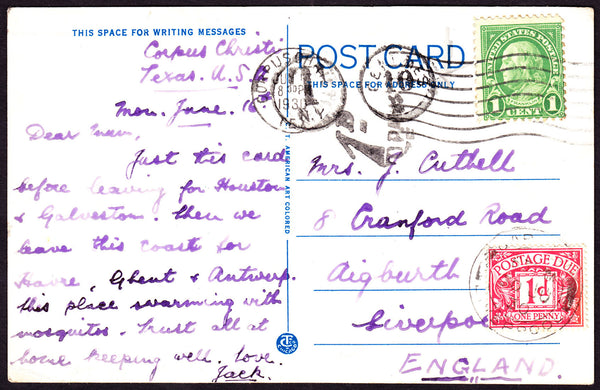 THIS SPACE FOR WRITING MESSAGES
Corpus Christi
Texas. U.S.A
Mon. June. 16
Dear Mum,
Just this card
before leaving for Houston
& Galveston. Then we
leave this coast for
Havre, Ghent & Antwerp.
this place swarming with
mosquitos. Trust all at
home keeping well. Love.
Jack.
POST CARD
THIS SPACE FOR ADDRESS ONLY
T. AMERICAN ART COLORED
UNITED STATES POSTAGE
1 CENT 1
N.Y.
T
1D
Mrs. J. Cuthell
8 Cranford Road
Aigburth
Liverpool
ENGLAND.
POSTAGE DUE
1d
ONE PENNY